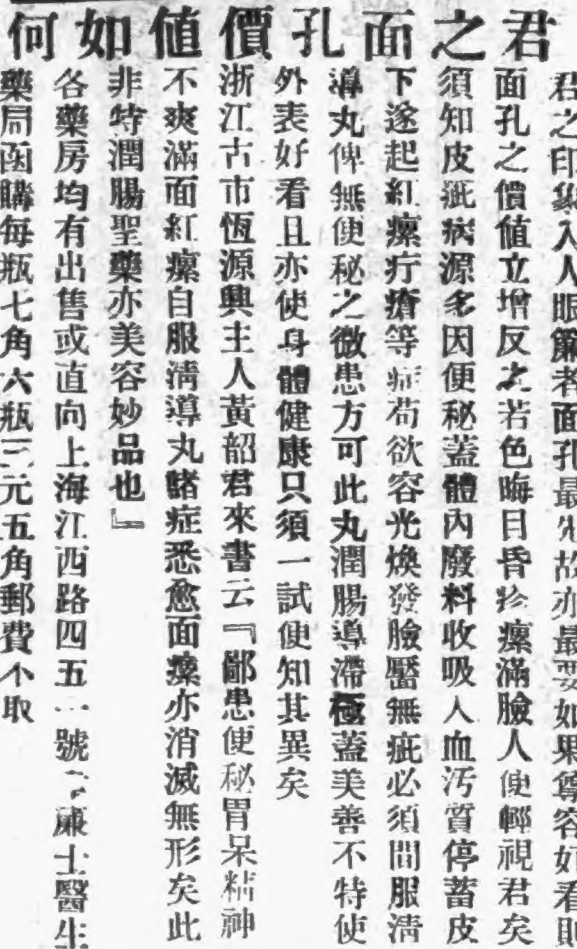 君之面孔價值如何
君之印象入人眼簾者面孔最先故亦最要如果尊容好看則
面孔之價值立增反之若色晦目昏疹瘰滿臉人便輕視君矣
須知皮疵病源多因便秘蓋體內廢料收吸入血汚質停蓄皮
下遂起紅瘰疔瘡等症苟欲容光煥發臉靨無疵必須間服清
導丸俾無便秘之微患方可此丸潤腸導滯極蓋美善不特使
外表好看且亦使身體健康只須一試便知其異矣
浙江古市恆源興主人黃韶君來書云『鄙患便秘胃呆精神
不爽滿面紅瘰自服清導丸諸症悉愈面瘰亦消滅無形矣此
非特潤腸聖藥亦美容妙品也』
各藥房均有出售或直向上海江西路四五一號韋廉士醫生
藥局函購每瓶七角六瓶三元五角郵費不取